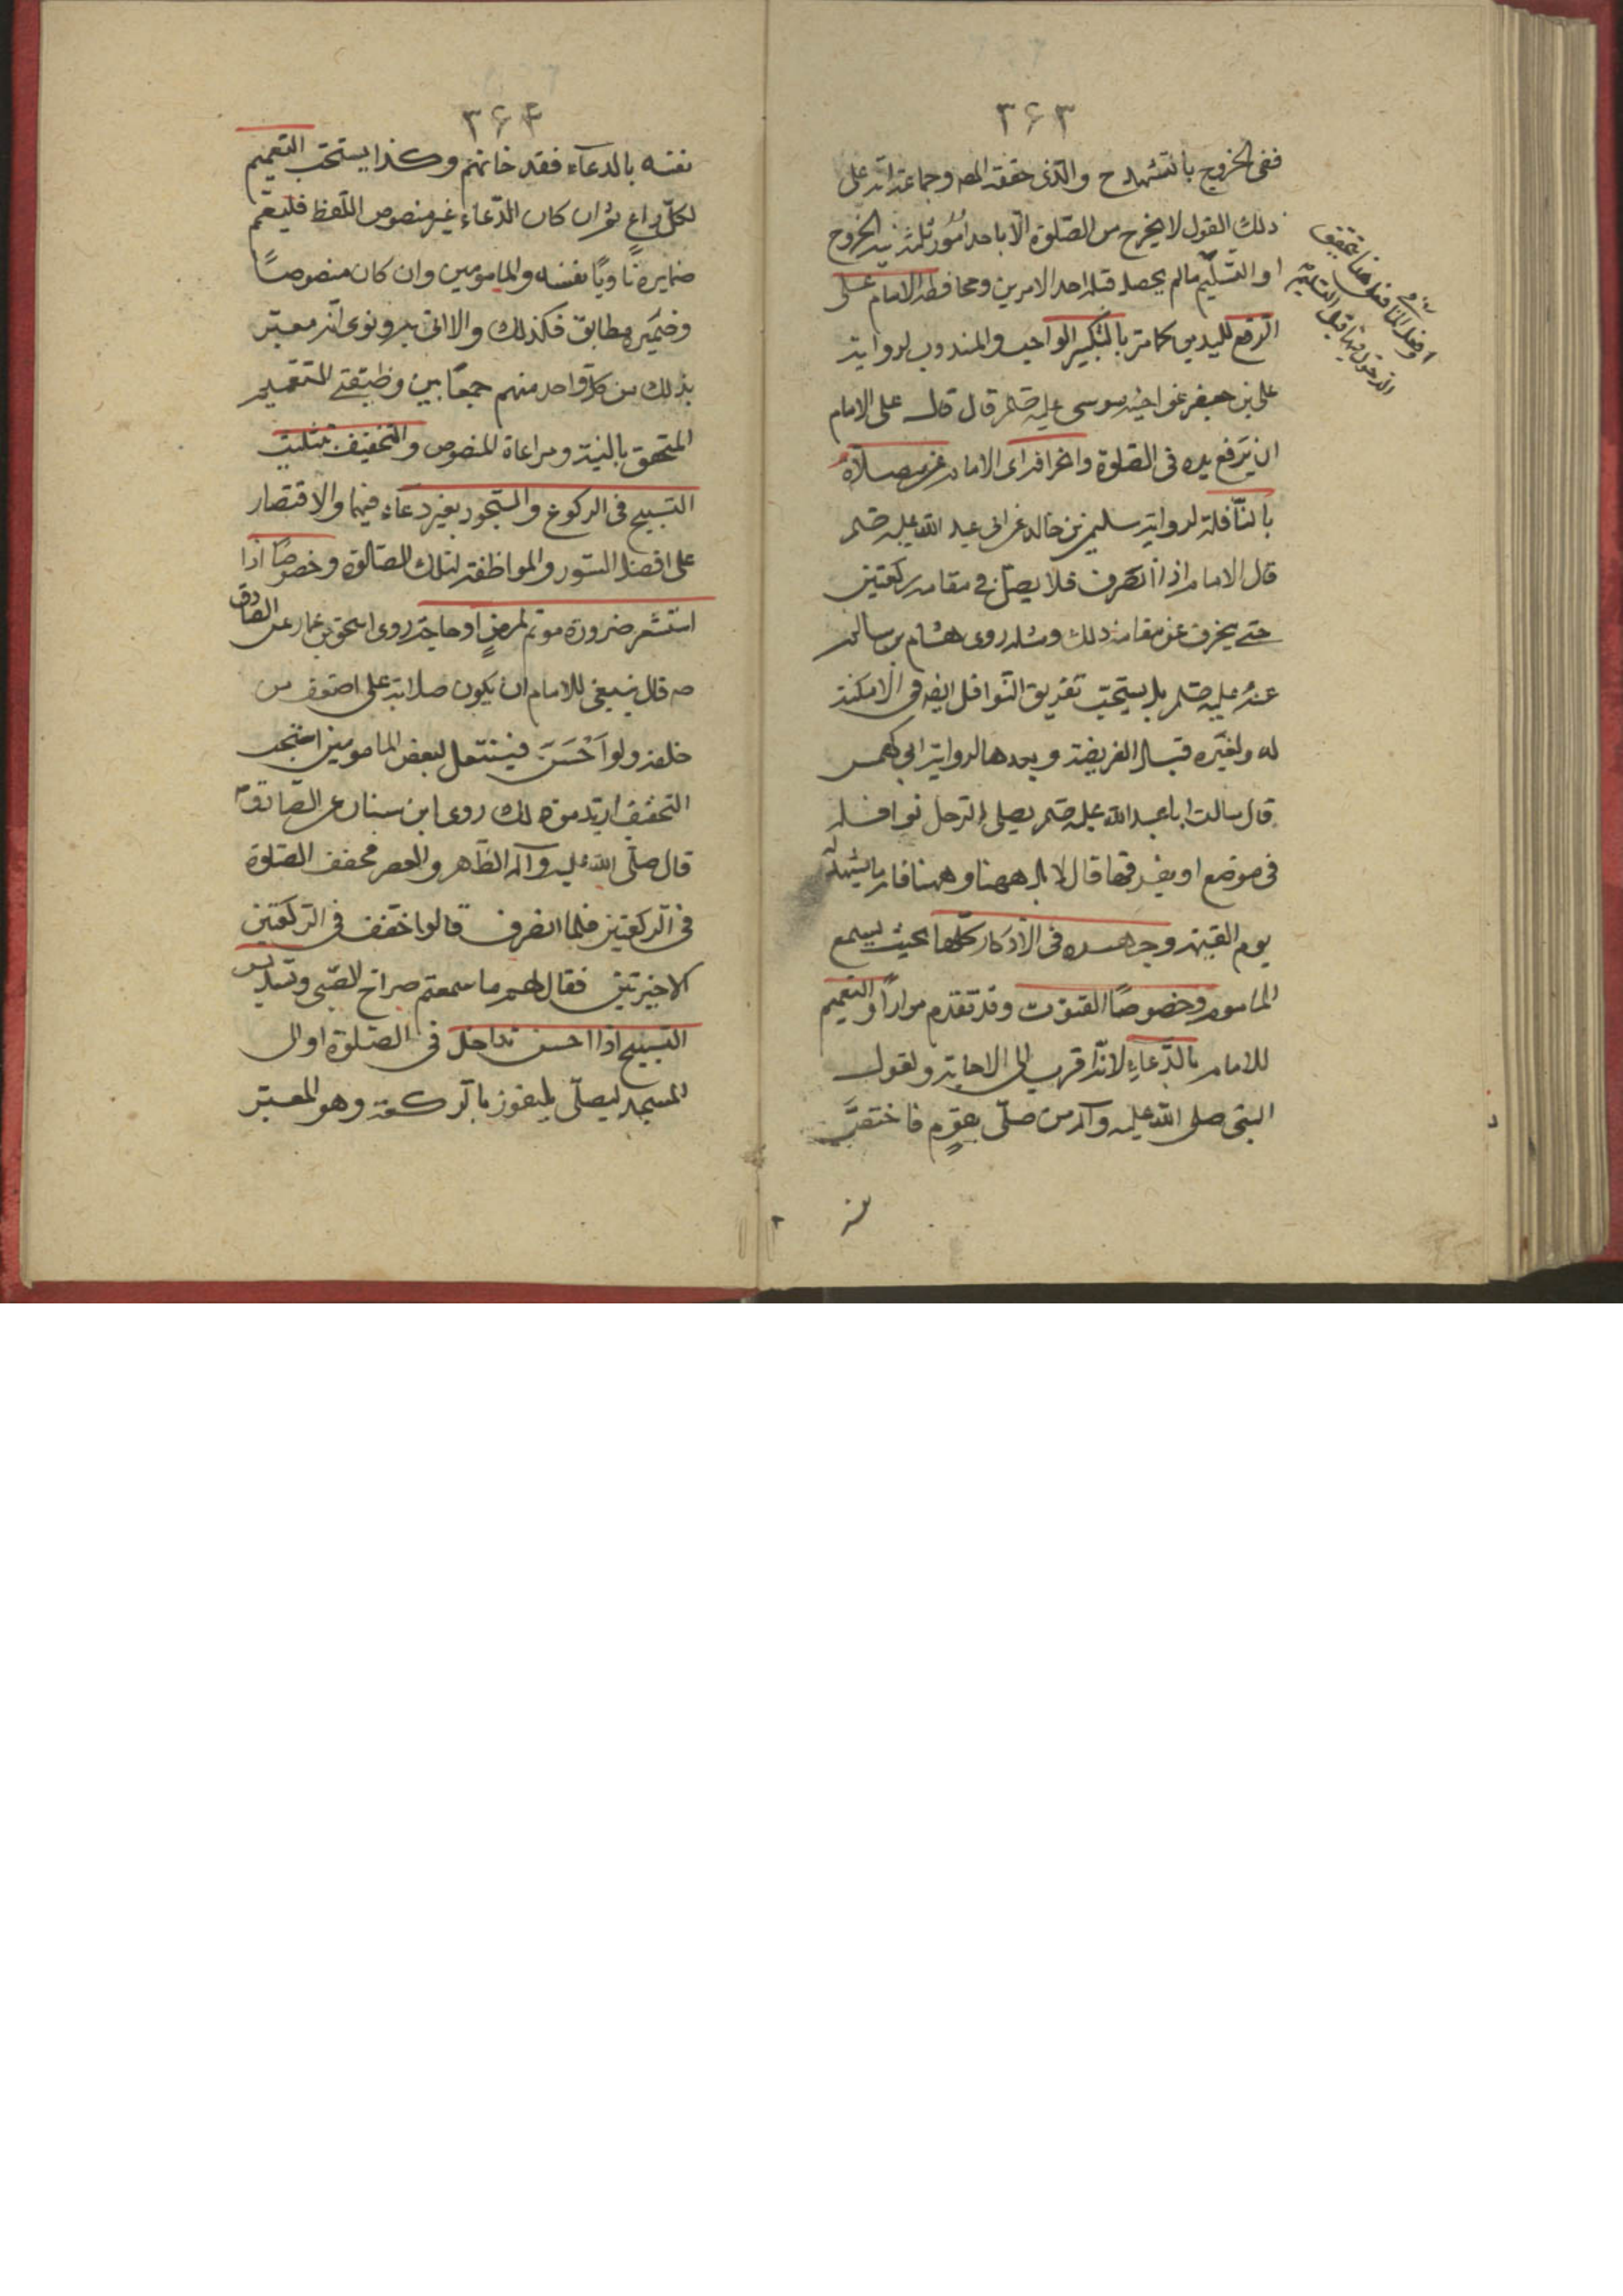 ٣۶٣
ففى الخروج بالتشهد ح والذى حققه المصه وجماعة انه على
ذلك القول لا يخرج من الصلوة الا باحد امور ثلثة نية الخروج
او التسليم مالم يحصل قبله احد الامرين ومحافظة الامام على
الرفع لليدين كما مر بالتكبير الواجب والمندوب لرواية
على بن جعفر عن اخيه موسى عليه صلم قال قال على الامام
ان يرفع يده فى الصلوة وانحرافه اى الامام عن مصلاه
بالنافلة لرواية سليمن بن خالد عن ابى عبد الله عليه صلم
قال الامام اذا انصرف فلا يصل فى مقامه ركعتين
حتى ينحرف عن مقامه ذلك ومثله روى هشام بن سالم
عنه عليه صلم بل يستحب تفريق النوافل ايضه فى الامكنة
له ولغيره قبل الفريضة وبعدها لرواية ابى كهمس
قال سالت ابا عبد الله عليه صلم يصلى الرجل نوافله
فى موضع او يفرقها قال لا بل ههنا وههنا فانها يشهد له
يوم القيمة وجهره فى الاذكار كلها بحيث يسمع
الماموم وخصوصًا القنوت وقد تقدم مرارًا والتعميم
للامام بالدعاء لانه اقرب الى الاجابة ولقول
النبى صلى الله عليه وآله من صلى بقوم فاختص
نفسه
او فعل المنافى
٣۶۴
نفسه بالدعاء فقد خانهم وكذا يستحب التعميم
لكل داع ثم ان كان الدعاء غير منصوص اللفظ فليعم
ضمايره ناويًا نفسه والمامومين وان كان منصوصًا
وضميره مطابق فكذلك والا اتى به ونوى انه معبر
بذلك من كل واحد منهم جمعًا بين وظيفتى التعميم
المتحقق بالنية ومراعاة المنصوص والتخفيف بتثليث
التسبيح فى الركوع والسجود بغير دعاء فيهما والاقتصار
على اقصد السور والمواظفة لتلك الصالوة وخصوصًا اذا
استشعر ضرورة موتم لمرض او حاجة روى اسحق بن عمار عن الصادق
صه قال ينبغى للامام ان يكون صلاته على اضعف من
خلفه ولو اَحَسَ بشغل لبعض المامومين استحب
التخفيف ازيد من ذلك روى ابن سنان عن الصادق
قال صلى الله عليه وآله الظهر والعصر مخفف الصلوة
فى الركعتين فلما انصرف قالوا خفف فى الركعتين
الاخيرتين فقال لهم ما سمعتم صراخ الصبى وتبديل
التسبيح اذا احس بداخل فى الصلوة او الى
المسجد ليصلى ليفوز بالركعة وهو المعبر